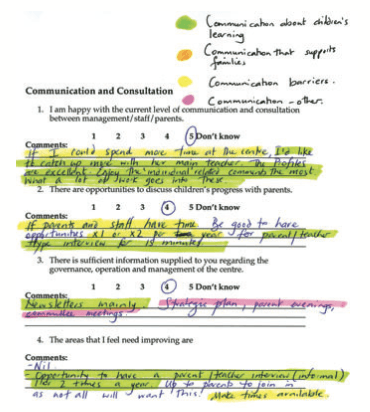 Communication about children's
learning
Communication that supports
families
Communication barriers.
Communication - other.
Communication and Consultation
1. I am happy with the current level of communication and consultation
between management/staff/parents.
1 2 3 4 5 Don't know
Comments:
If I could spend more time at the centre, I'd like
to catch up more with her main teacher. The Profiles
are excellent. Enjoy the individual related comments the most
what a lot of work goes into these.
2. There are opportunities to discuss children's progress with parents.
1 2 3 4 5 Don't know
Comments:
If parents and staff have time. Be good to have
opportunities x1 or x2 per year for parent/teacher
type interview for 15 minutes
3. There is sufficient information supplied to you regarding the
governance, operation and management of the centre.
1 2 3 4 5 Don't know
Comments:
Newsletters mainly. Strategic plan, parent evenings,
committee meetings.
4. The areas that I feel need improving are
Comments:
- Nil
- Opportunity to have a parent/teacher interview (informal)
2 times a year. Up to parents to join in
as not all will want this! Make times available.